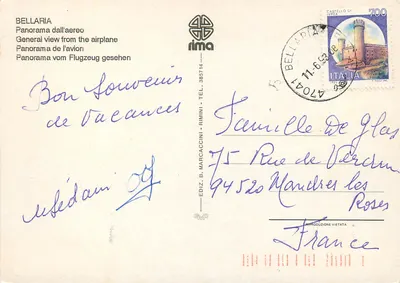 BELLARIA
Panorama dall'aereo
General view from the airplane
Panorama de l'avion
Panorama vom Flugzeug gesehen
rima
700
ITALIA
47041 BELLARIA
11-6
EDIZ. B. MARCACCINI - RIMINI - TEL. 385714
Bon Souvenirs
de Vacances
Famille De Glas
75 Rue de Verdun
94520 Mandres les
Roses
France
RIPRODUZIONE VIETATA